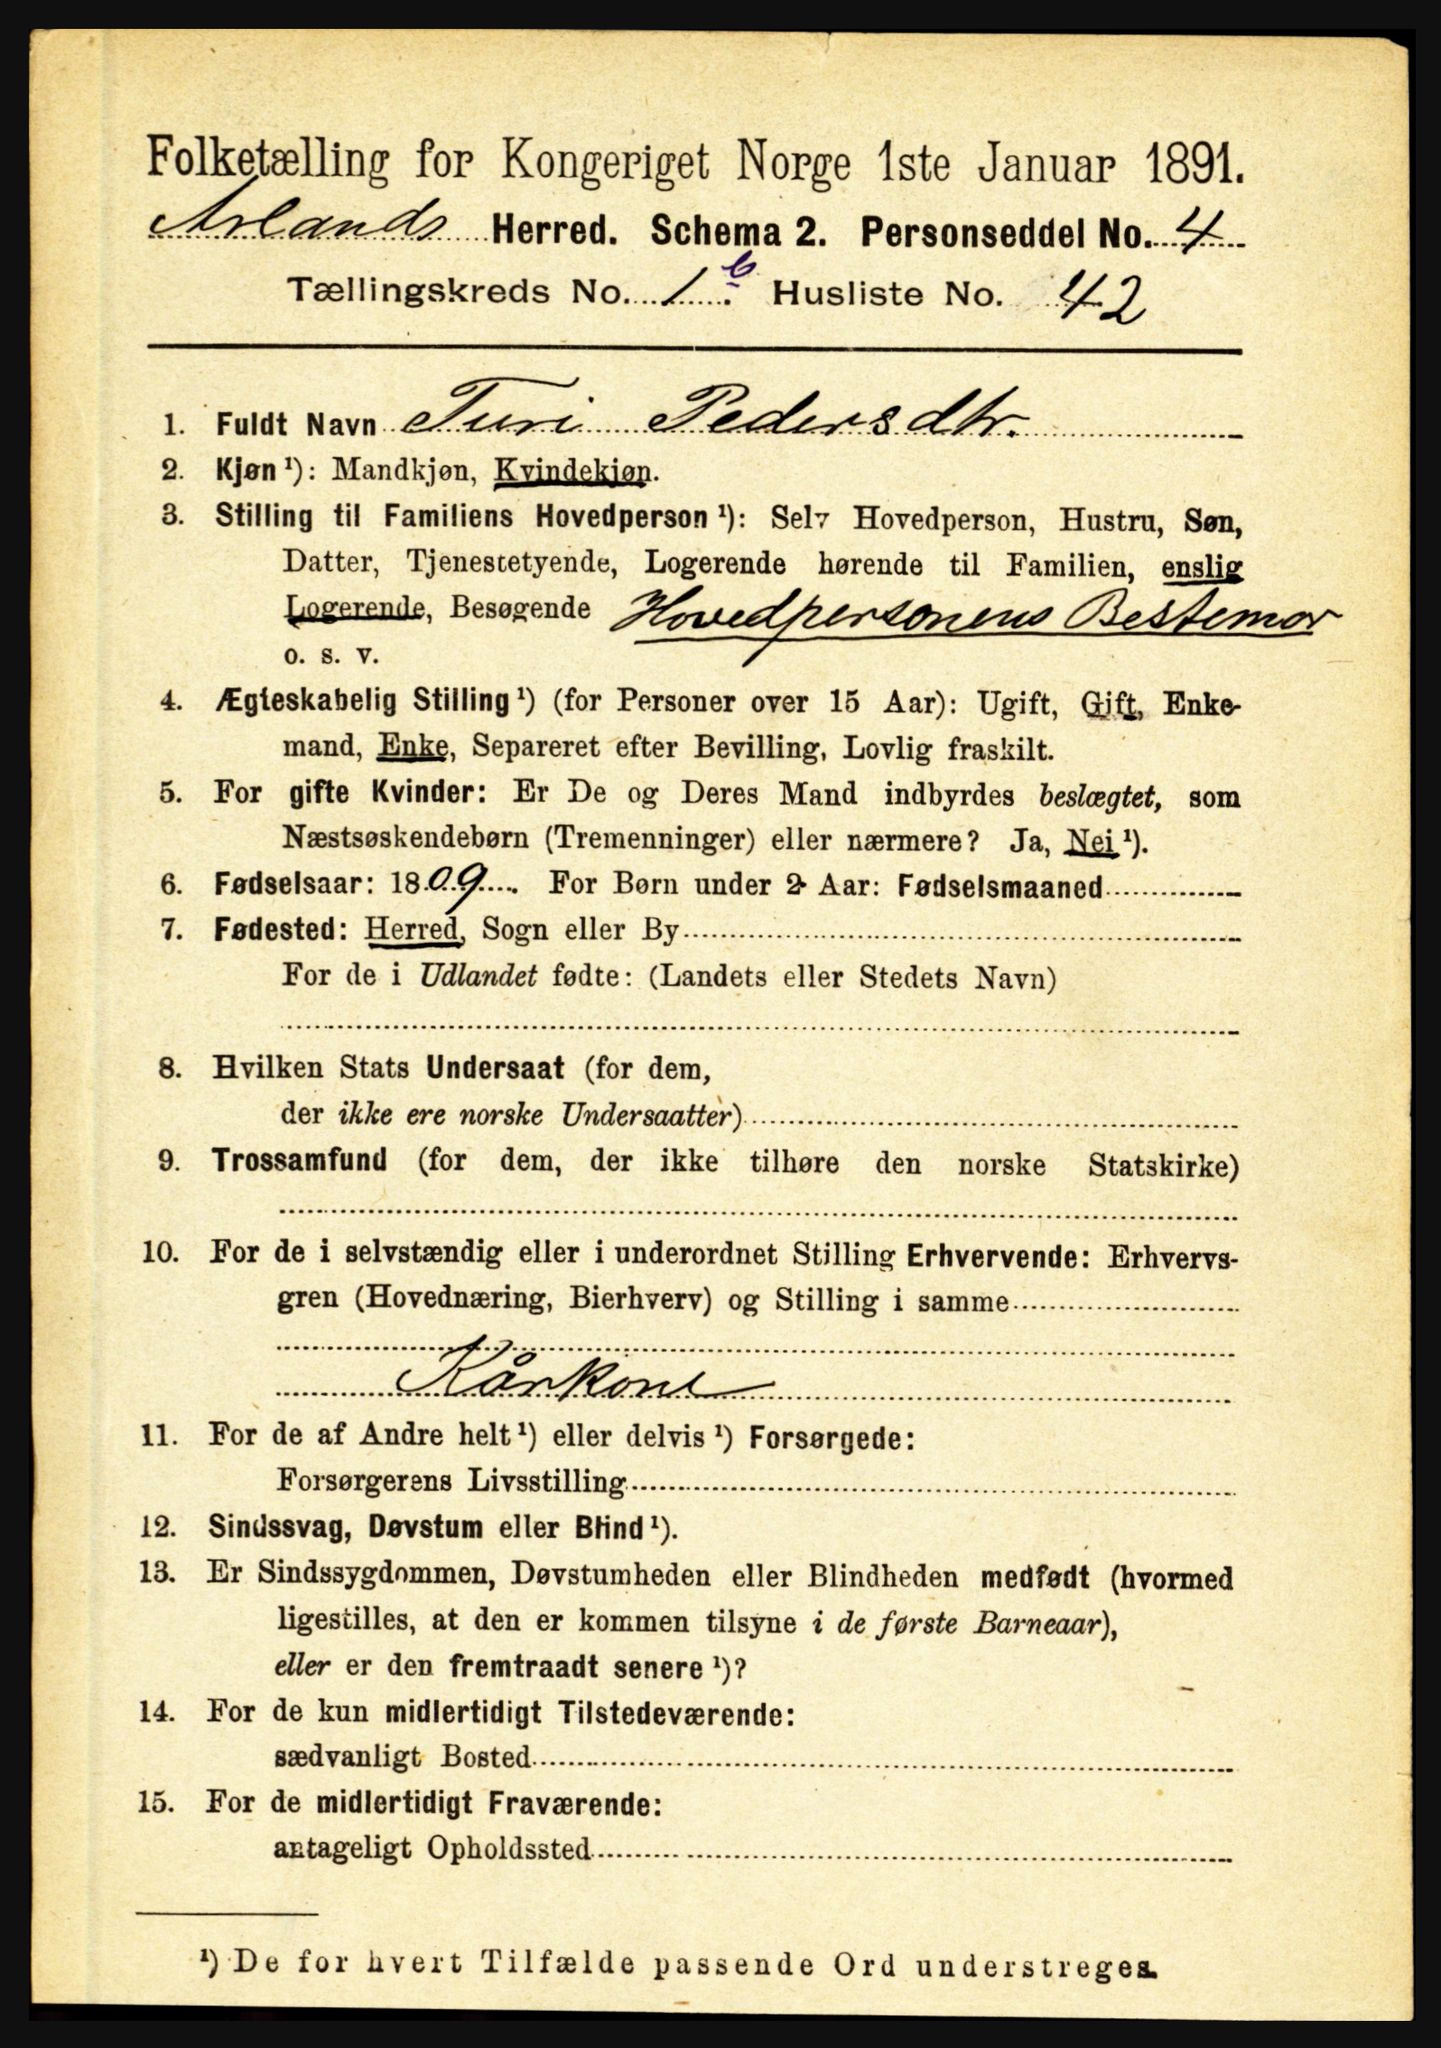 Folketælling for Kongeriget Norge 1ste Januar 1891.
Arlands Herred. Schema 2. Personseddel No. 4
Tællingskreds No. 1 b. Husliste No. 42
1. Fuldt Navn Turi Pedersdtr.
2. Kjøn ¹): Mandkjøn, Kvindekjøn.
3. Stilling til Familiens Hovedperson ¹): Selv Hovedperson, Hustru, Søn,
Datter, Tjenestetyende, Logerende hørende til Familien, enslig
Logerende, Besøgende Hovedpersonens Bestemor
o. s. v.
4. Ægteskabelig Stilling ¹) (for Personer over 15 Aar): Ugift, Gift, Enke-
mand, Enke, Separeret efter Bevilling, Lovlig fraskilt.
5. For gifte Kvinder: Er De og Deres Mand indbyrdes beslægtet, som
Næstsøskendebørn (Tremenninger) eller nærmere? Ja, Nei ¹).
6. Fødselsaar: 1809. For Børn under 2 Aar: Fødselsmaaned
7. Fødested: Herred, Sogn eller By
For de i Udlandet fødte: (Landets eller Stedets Navn)
8. Hvilken Stats Undersaat (for dem,
der ikke ere norske Undersaatter)
9. Trossamfund (for dem, der ikke tilhøre den norske Statskirke)
10. For de i selvstændig eller i underordnet Stilling Erhvervende: Erhvervs-
gren (Hovednæring, Bierhverv) og Stilling i samme
Kårkone
11. For de af Andre helt ¹) eller delvis ¹) Forsørgede:
Forsørgerens Livsstilling
12. Sindssvag, Døvstum eller Blind ¹).
13. Er Sindssygdommen, Døvstumheden eller Blindheden medfødt (hvormed
ligestilles, at den er kommen tilsyne i de første Barneaar),
eller er den fremtraadt senere ¹)?
14. For de kun midlertidigt Tilstedeværende:
sædvanligt Bosted
15. For de midlertidigt Fraværende:
antageligt Opholdssted
¹) De for hvert Tilfælde passende Ord understreges.